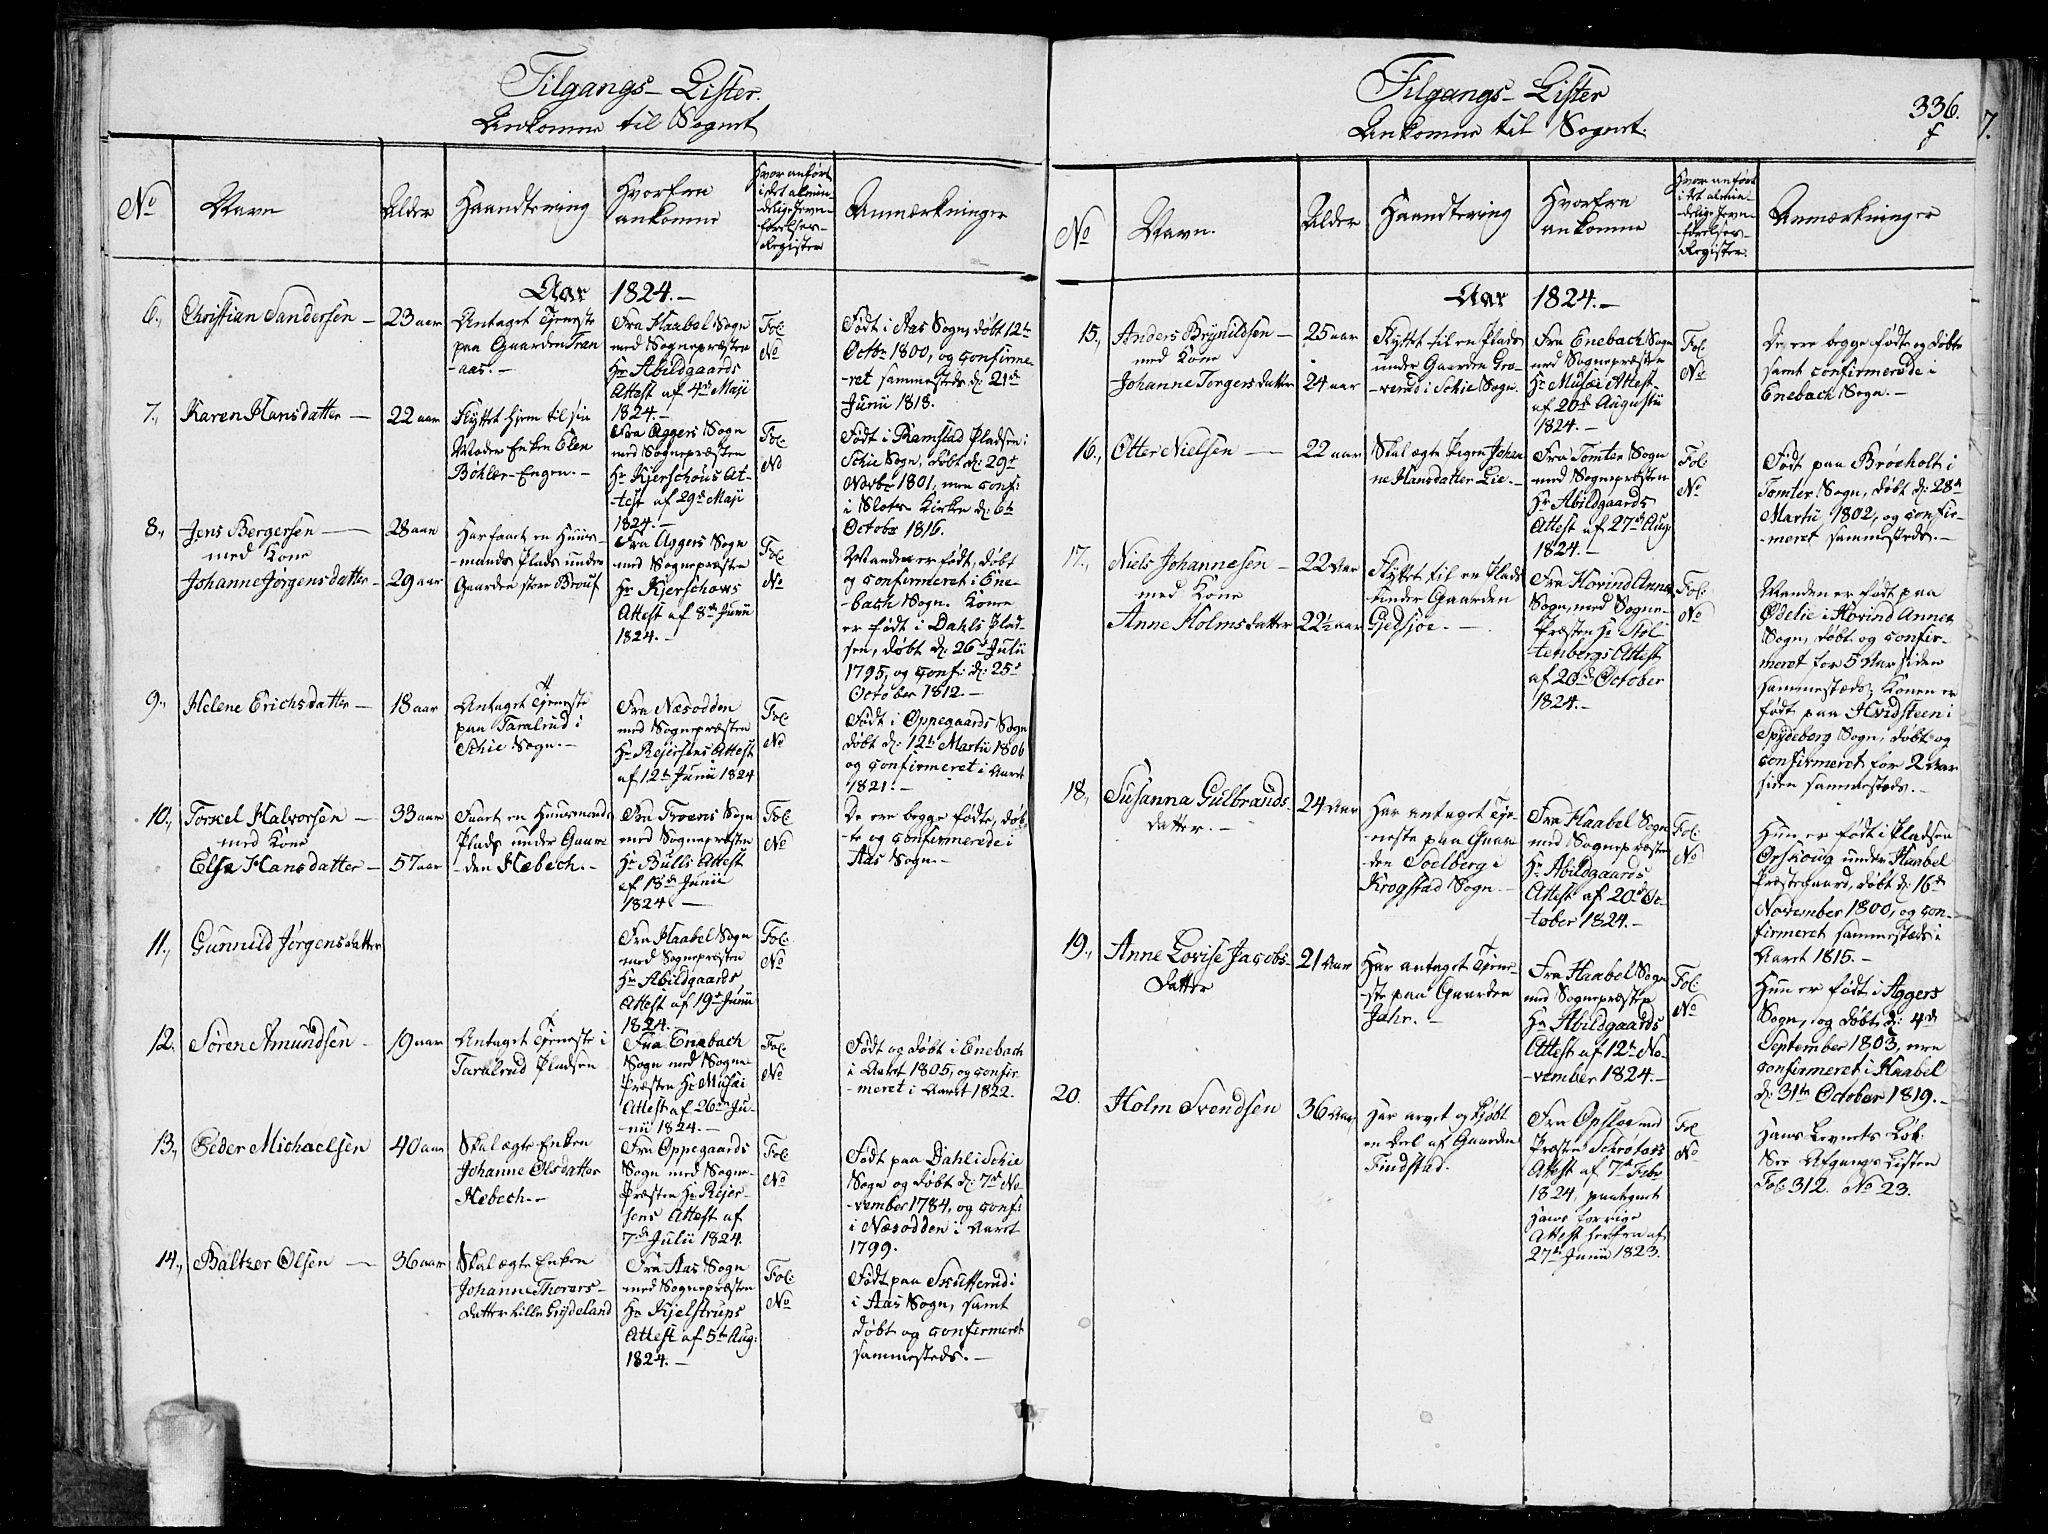 Tilgangs-Lister.
Ankomne til Sognet
No
Navn
Alder
Haandtering
Hvorfra
ankomne
Hvor anført
i det almin-
delige Jevn-
førelses-
Register
Anmærkninger
Aar 1824.-
6.,
Christian Sandersen -
23 aar
Antaget Tjeneste
paa Gaarden Tran
-aas. -
Fra Haabel Sogn
med Sognepræsten
Hr Abildgaards
Attest af 4de Maji
1824.-
Fol.
No
Født i Aas Sogn døbt 12te
Octbr 1800, og confirme-
-ret sammesteds d: 21de
Junii 1818.
7.,
Karen Hansdatter -
22 aar
Flyttet hjem til sin
Moder Enken Elen
Bøhler-Engen. -
Fra Aggers Sogn
med Sognepræsten
Hr Kjerschous At-
test af 29de Maji
1824.-
Fol.
No
Født i Ramstad Pladsen i
Schie Sogn, døbt d: 29t
Novbr 1801, men conf:
i Slots Kirke d: 6te
Octobr 1816.
8.,
Jens Bergersen -
med Kone
Johanne Jørgensdatter -
28 aar
29 aar
Har faaet en Huus-
mands Plads under
Gaarden store Brouf
Fra Aggers Sogn
med Sognepræsten
Hr Kjerschows
Attest af 8de Junii
1824.-
Fol.
No
Manden er født, døbt
og confirmeret i Ene-
-bach Sogn. Konen
er født i Dahls Plad-
sen, døbt d: 26de Julii
1795, og conf: d: 25de
October 1812. -
9.,
Helene Erichsdatter -
18 aar
Antaget Tjeneste
paa Taralrud i
Schie Sogn. -
Fra Næsodden
med Sognepræsten
Hr Rejersens Attest
af 12te Junii 1824
Fol.
No
Født i Oppegaards Sogn
døbt d: 12te Martii 1806
og confirmeret i Aaret
1821. -
10.,
Torkel Halvorsen -
med Kone
Else Hansdatter -
33 aar
57 aar
Faaet en Huusmands
Plads under Gaar-
-den Nebech. -
Fra Froens Sogn
med Sognepræsten
Hr Bulls Attest
af 18de Junii
1824 -
Fol.
No
De ere begge fødte, døb-
-te og confirmerede i
Aas Sogn. -
11.,
Gunnild Jørgensdatter
Fra Haabel Sogn
med Sognepræsten
Hr Abildgaards
Attest af 19de Junii
1824.
Fol.
No
12.
Søren Amundsen -
19 aar
Antaget Tjeneste i
Taralrud Pladsen
Fra Enebach
Sogn med Sogne-
Præsten Hr Musæi
Attest af 26de Ju-
-nii 1824. -
Fol.
No
Født og døbt i Enebach
i Aaret 1805, og confir-
-meret i Aaret 1822.
13.,
Peder Michaelsen
40 aar
Skal ægte Enken
Johanne Olsdatter
Nebech. -
Fra Oppegaards
Sogn med Sogne-
Præsten Hr Rejer-
sens Attest af
7de Julii 1824.
Fol.
No
Født paa Dahl i Schie
Sogn og døbt d: 7de No-
-vember 1784, og conf:
i Næsodden i Aaret
1799.
14.,
Baltzer Olsen -
36 aar
Skal ægte Enken
Johanne Thorers-
datter Lille Grydeland
Fra Aas Sogn
med Sognepræsten
Hr Kjelstrups
Attest af 5te Aug:
1824. -
Fol.
No
Født paa Skutterud i
i Aas Sogn, samt
døbt og confirmeret
sammesteds. -
Tilgangs-Lister
Ankomne til Sognet.
336.
7.
No
Navn.
Alder
Haandtering
Hvorfra
ankomne
Hvor anført
i det almin-
-delige Jevn-
-førelses-
Register.
Anmærkninger
Aar 1824.-
15.,
Anders Brynildsen -
med Kone
Johanne Torgersdatter
25 aar
24 aar
Flyttet til en Plads
under Gaarden Gro-
-verud i Schie Sogn.
Fra Enebach Sogn
med Sognepræsten
Hr Musæi Attest
af 20de Augustii
1824. -
Fol
No
De ere begge fødte og døbte
samt confirmerede i
Enebach Sogn. -
16.,
Otter Nielsen -
22 aar
Skal ægte Pigen Johan
ne Hansdatter Lie. -
Fra Tomter Sogn
med Sognepræsten
Hr Abildgaards
Attest af 27de Aug:
1824. -
Fol.
No
Født paa Brøeholt i
Tomter Sogn, døbt d: 28de
Martii 1802, og confir-
-meret sammesteds. -
17.,
Niels Johannesen -
med Kone
Anne Holmsdatter
22 Aar
22½ aar
Flyttet til en Plads
under Gaarden
Gjedsjøe. -
Fra Hovind Annex
Sogn, med Sogne-
Præsten Hr Stol-
-tenbergs Attest
af 20de October
1824. -
Fol.
No
Manden er født paa
Ødelie i Hovind Annex
Sogn, døbt og confir-
meret for 5 Aar siden
sammesteds; Konen er
født paa Hvidsteen i
Spydeberg Sogn, døbt og
confirmeret før 2 Aar
siden sammesteds. -
18.,
Susanna Gulbrands-
datter. -
24 Aar
Har antaget Tje-
neste paa Gaar-
den Soelberg i
Krogstad Sogn. -
Fra Haabel Sogn
med Sognepræsten
Hr Abildgaards
Attest af 20de Oc-
tober 1824. -
Fol.
No
Hun er født i Pladsen
Ørskoug under Haabel
Præstegaard, døbt d: 16de
November 1800, og con-
firmeret sammesteds i
Aaret 1815. -
19.,
Anne Lovise Jacobs-
datter
21 Aar
Har antaget Tjene-
-ste paa Gaarden
Jahr. -
Fra Haabel Sogn
med Sognepræsten
Hr Abildgaards
Attest af 12te No-
-vember 1824. -
Fol.
No
Hun er født i Aggers
Sogn, og døbt d: 4de
September 1803, men
confirmeret i Haabel
d: 31te October 1819. -
20.
Holm Svendsen
36 Aar
Har arvet og kjøbt
en Deel af Gaarden
Findstad.
Fra Opsloe med
Præsten Schrøters
Attest af 7de Febr
1824, paategnet
hans forrige
Attest herfra af
27de Junii 1823.
Fol
No
Hans Levnets Løb.
See Afgangs Listen
Fol: 312. No 23.